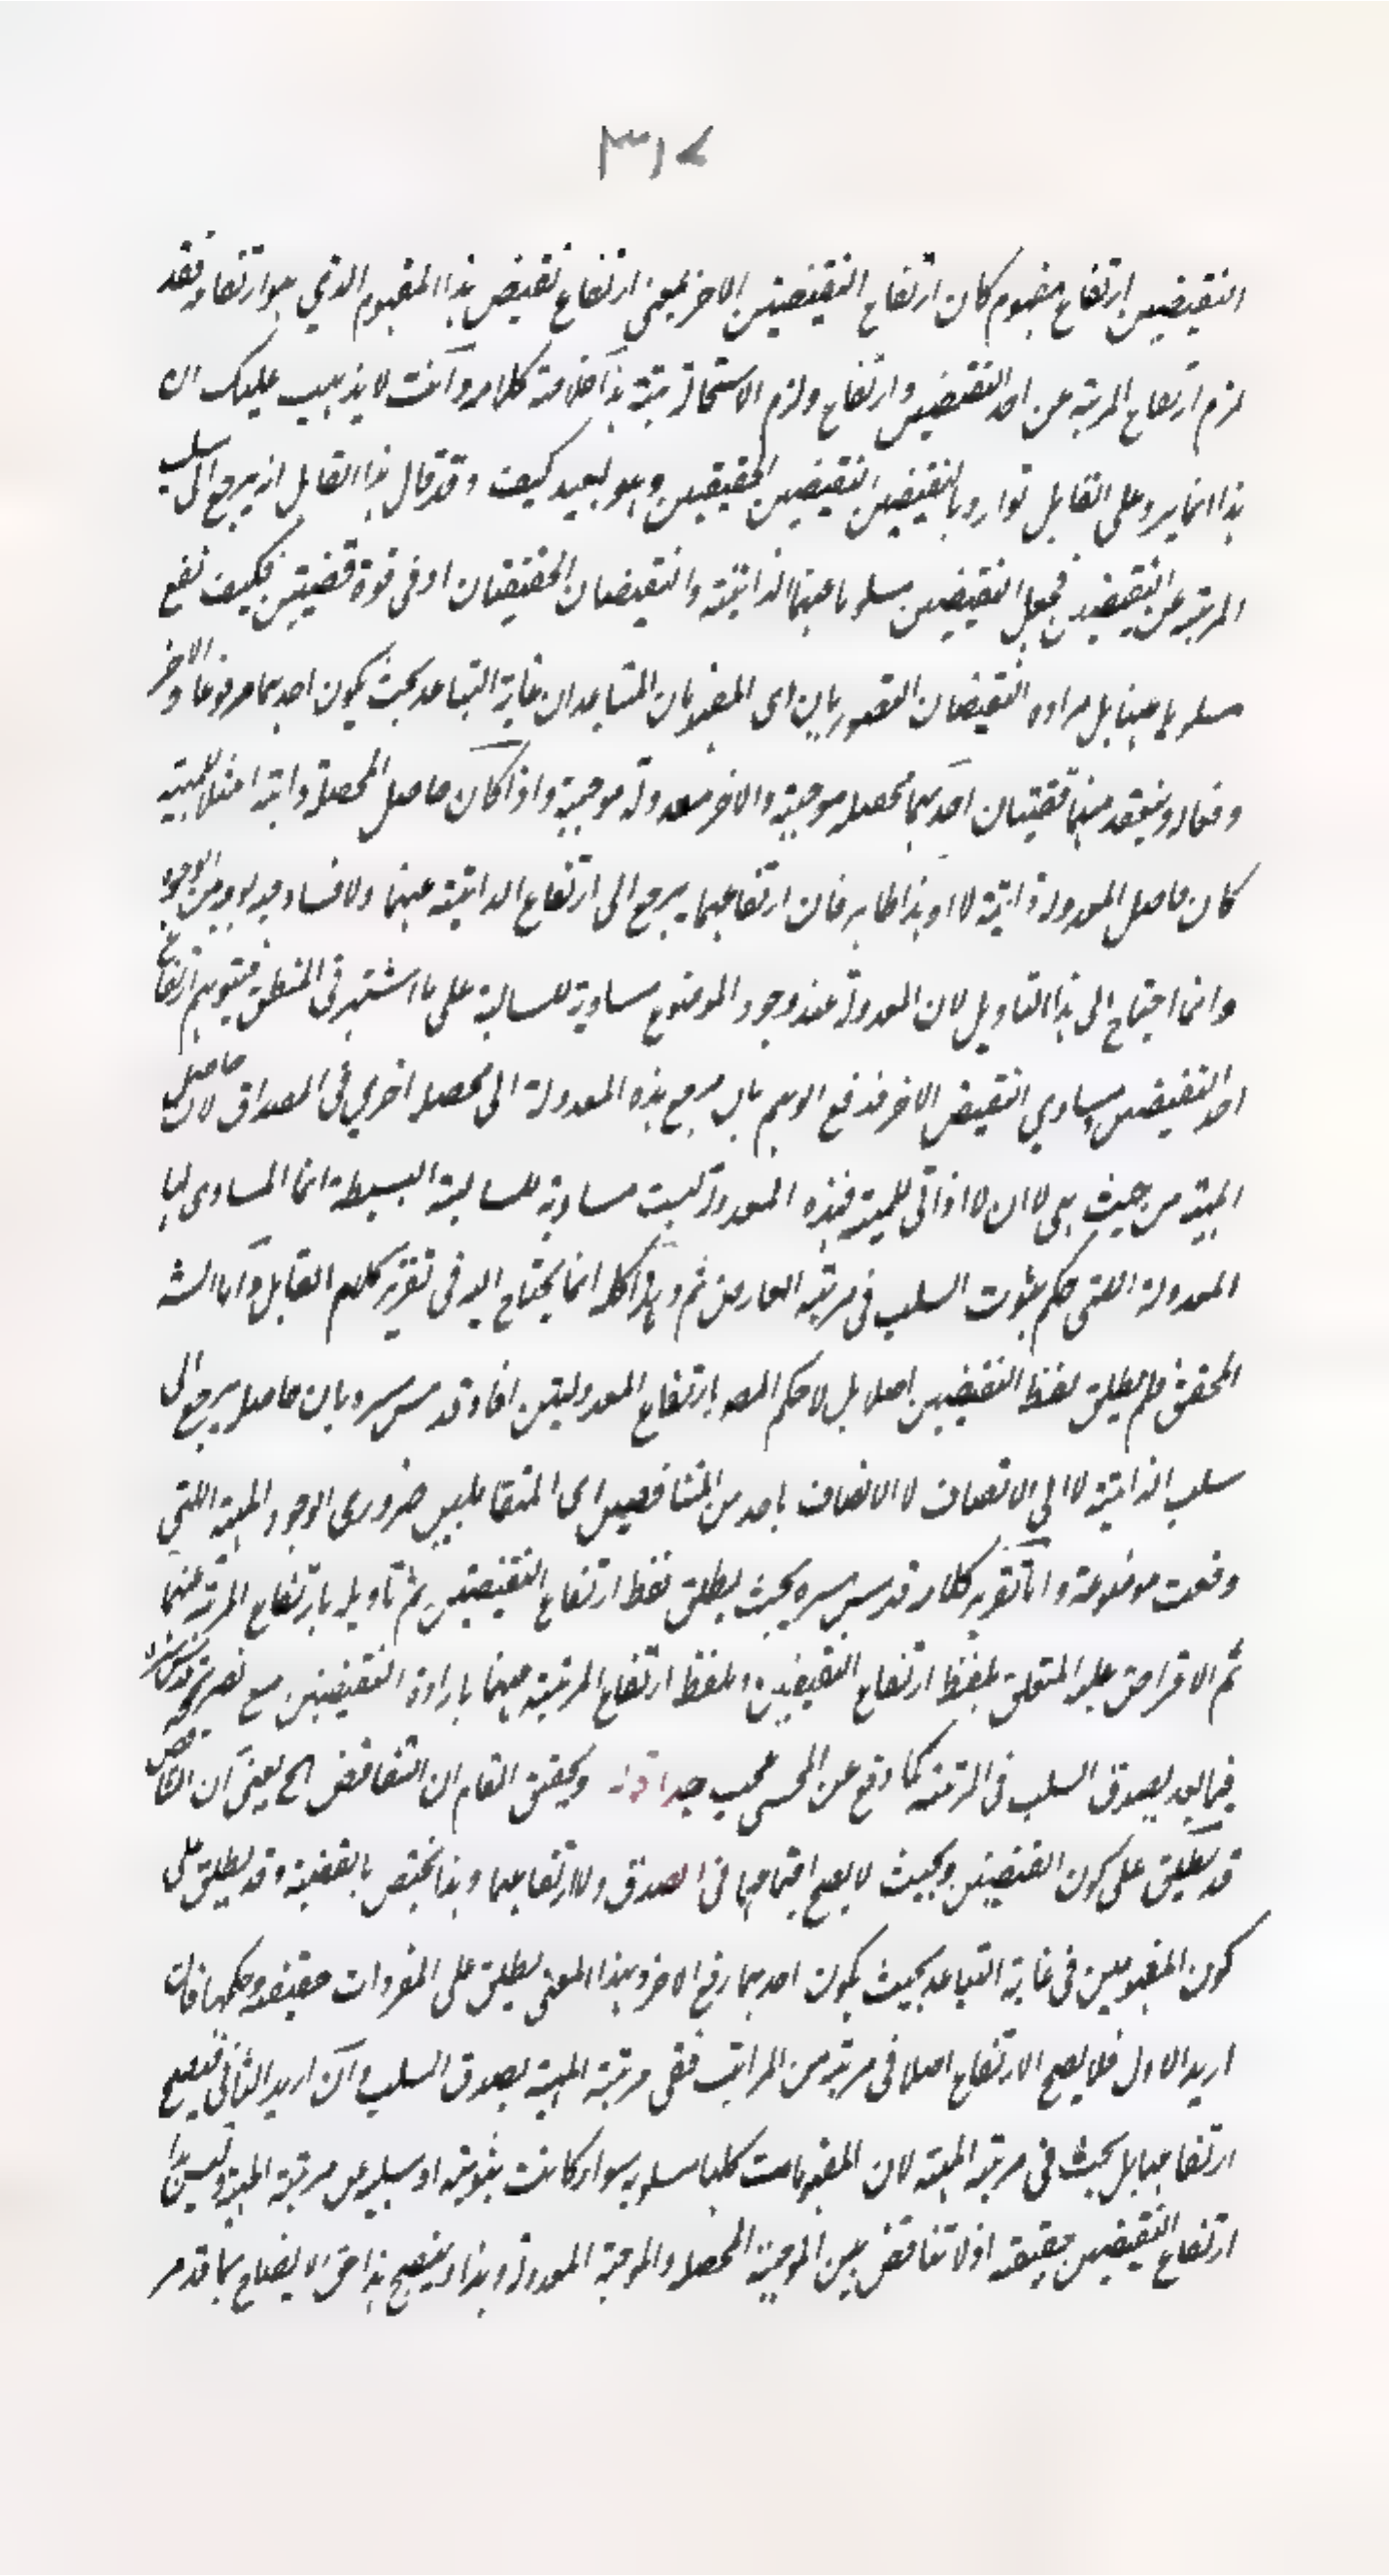 ٣١٧
النقيضين ارتفاع مفهوم كان ارتفاع النقيضين الاخر بمعنى ارتفاع نقيض هذا المفهوم الذي هو ارتفاعه فقد
لزم ارتفاع المرتبة عن احد النقيضين وارتفاع ولزم الاستحالة بتة هذا خلاصة كلامه وآنت لا يذهب عليك ان
هذا انما يرد على القايل لو اراد بالنقيضين النقيضين الحقيقيين وهو بعيد كيف وقد قال هذا القايل انه يرجع الى سلب
المرتبة عن النقيضين فجعل النقيضين مسلوبا عينها الذاتية والنقيضان الحقيقيان او فى قوة قضيتين فكيف تقع
مسلوبا عنها بل مراده النقيضان التصوريان اى المفهومان المتباعدان غاية التباعد بحيث يكون احدهما مرفوعا والاخر
رفعا له وينعقد منهما قضيتان احدهما محصلة موجبة والاخر معدولة موجبة واذا كان حاصل المحصلة ذاتية ا مثلا للمهية
كان حاصل المعدولة ذاتية لا ا وهذا ظاهر فان ارتفاعهما يرجع الى ارتفاع الذاتية عنهما ولا فساد فيه بوجه من الوجوه
وانما احتاج الى هذا التاويل لان المعدولة عند وجود الموضوع مساوية للسالبة على ما اشتهر فى المنطق فيتوهم ارتفاع
احد النقيضين مساوي النقيض الاخر فدفع الوهم بان مرجع هذه المعدولة الى محصلة اخرى فى المصداق لان حاصل
المهية من حيث هى لا ا ان لا ا ذاتى للمهية فهذه المعدولة ليست مساوية للسالبة البسيطة انما المساوى لها
المعدولة اللتى حكم بثبوت السلب فى مرتبة العارض ثم وهذا كله انما يحتاج اليه فى تقرير كلام القايل وآما الش
المحقق فلم يطلق لفظ النقيضين اصلا بل لا حكم المص بارتفاع المعدوليتين افاد قدس سره بان حاصله يرجع الى
سلب الذاتية لا الى الاتصاف لا الاتصاف باحد من المتناقضين اى المتقابلين ضرورى الوجود المهية اللتى
وقعت موضوعة واما تقرير كلامه قدس سره بحيث يطلق لفظ ارتفاع النقيضين ثم تاويله بارتفاع المرتبة عنهما
ثم الاقراض عليه المتعلق بلفظ ارتفاع النقيضين وبلفظ ارتفاع المرتبة عنهما بارادة النقيضين مع تصريحه قدس سره
فيما بعد بصدق السلب فى المرتبة كما وقع عن المحشى عجيب جدا قوله وتحقيق المقام ان التناقض الخ يعنى ان التناقض
قد يطلق على كون القضيتين وبحيث لا يصح اجتماعهما فى الصدق ولا ارتفاعهما وهذا يختص بالقضية وقد يطلق على
كون المفهومين فى غاية التباعد بحيث يكون احدهما رفع الاخر وبهذا المعنى يطلق على المفردات حقيقة وحكمها فان
اريد الاول فلا يصح الارتفاع اصلا فى مرتبة من المراتب ففى مرتبة المهية يصدق السلب وان اريد الثانى فيصح
ارتفاعهما بل بحث فى مرتبة المهية لان المفهومات كلها مسلوبة سواء كانت ثبوتية او سلبية عن مرتبة المهية وليس هذا
ارتفاع النقيضين حقيقة اذ لا تناقض بين الموجبة المحصلة والموجبة المعدولة وهذا وينصح هذا حق الايضاح بما قد مر